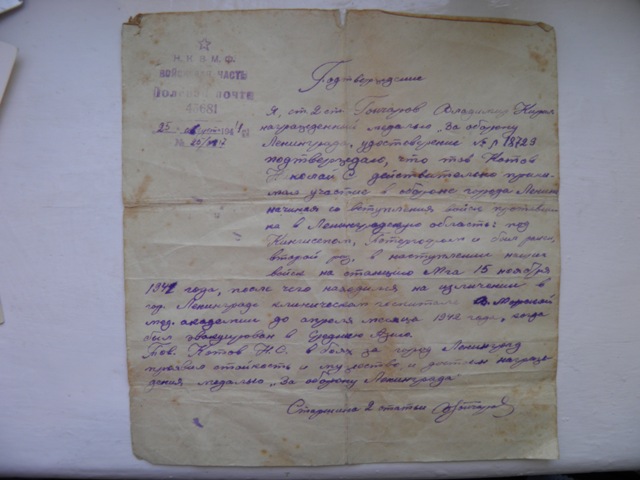 Н.К.В.М.Ф.
ВОЙСКОВАЯ ЧАСТЬ
Полевая почта
43681
25
№
Подтверждение
Я, ст 2 ст Гончаров Владимир
награжденный медалью "За оборону
Ленинграда" удостоверение № 18723
подтверждаю, что тов Котов
Николай С действительно прини-
мал участие в обороне города
начиная со вступления войск противни-
ка в Ленинградскую область: под
Кингисепом, и был ранен
второй раз, в наступлении наших
войск на станцию Мга 15 ноября
1941 года, после чего находился на излечении в
гор. Ленинграде клиническом госпитале Морской
мед. академии до апреля месяца 1942 года, когда
был эвакуирован в Среднюю Азию.
Тов. Котов Н.С. в боях за город Ленинград
проявил стойкость и мужество и достоин награж-
дения медалью "За оборону Ленинграда"
Старшина 2 статьи Гончаров